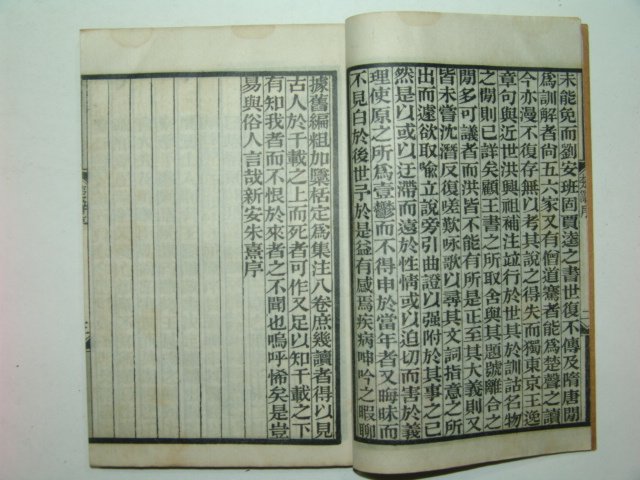 未能免而劉安班固賈逵之書世復不傳及隋唐間
爲訓解者尙五六家又有僧道騫者能爲楚聲之讀
今亦漫不復存無以考其說之得失而獨東京王逸
章句與近世洪興祖補注竝行於世其於訓詁名物
之閒則已詳矣顧王書之所取舍與其題號離合之
閒多可議者而洪皆不能有所是正至其大義則又
皆未嘗沈潛反復嗟歎咏歌以尋其文詞指意之所
出而遽欲取喻立說旁引曲證以强附於其事之已
然是以或以迂滯而遠於性情或以迫切而害於義
理使原之所爲壹鬱而不得申於當年者又晦昧而
不見白於後世予於是益有感焉疾病呻吟之暇聊
據舊編粗加檃栝定爲集注八卷庶幾讀者得以見
古人於千載之上而死者可作又足以知千載之下
有知我者而不恨於來者之不聞也嗚呼悕矣是豈
易與俗人言哉新安朱熹序